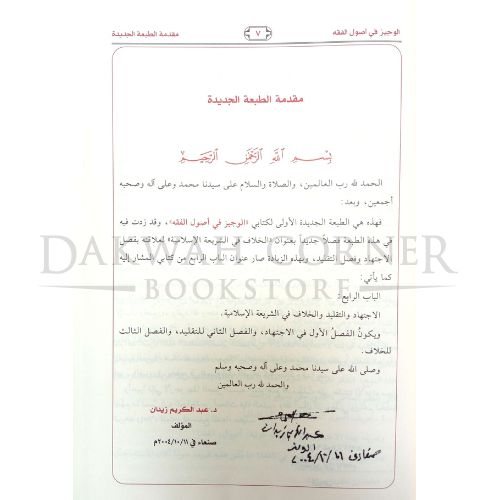 الوجيز في أصول الفقه
٧
مقدمة الطبعة الجديدة
مقدمة الطبعة الجديدة
بسم الله الرحمن الرحيم
الحمد لله رب العالمين، والصلاة والسلام على سيدنا محمد وعلى آله وصحبه
أجمعين، وبعد:
فهذه هي الطبعة الجديدة الأولى لكتابي «الوجيز في أصول الفقه»، وقد زدت فيه
في هذه الطبعة فصلاً جديداً بعنوان «الخلاف في الشريعة الإسلامية» لعلاقته بفصل
الاجتهاد وفصل التقليد، وبهذه الزيادة صار عنوان الباب الرابع من كتابي المشار إليه
كما يأتي:
الباب الرابع:
الاجتهاد والتقليد والخلاف في الشريعة الإسلامية.
ويكونُ الفصلُ الأول في الاجتهاد، والفصل الثاني للتقليد، والفصل الثالث
للخلاف.
وصلى الله على سيدنا محمد وعلى آله وصحبه وسلم
والحمد لله رب العالمين
د. عبد الكريم زيدان
المؤلف
صنعاء في ٢٠٠٤/١٠/١١م
عبد الكريم زيدان
المؤلف
DAKWAH CORNER
BOOKSTORE